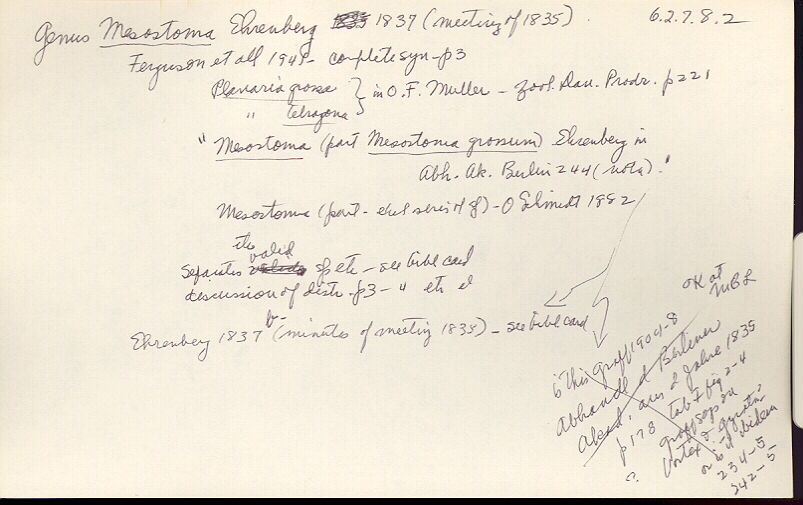 Genus Mesostoma Ehrenberg 1835 1837 (meeting of 1835). 6.2.7.8.2
Ferguson et all 194 - complete syn - p3
Planaria grossa } in O.F. Muller - Zool. Dan. Prodr. p221
" tetragona
"Mesostoma (part Mesostoma grossum) Ehrenberg in
Abh. Ak. Berlin 244 (nota)."
Mesostoma (part - ) - O Schmidt 1882
the valid
Separates sp etc - see bibl card
discussion of distr. p3-4 etc
Ehrenberg 1837 b- (minutes of meeting 1835) - see bibl card
OK at
MBL
is this Graff 1904-8
Abhandl d Berliner
Akad. aus d Jahre 1835
p178 tab I fig 2-4
Graff says
Vortex
or is it ibidem
234-5
242-5